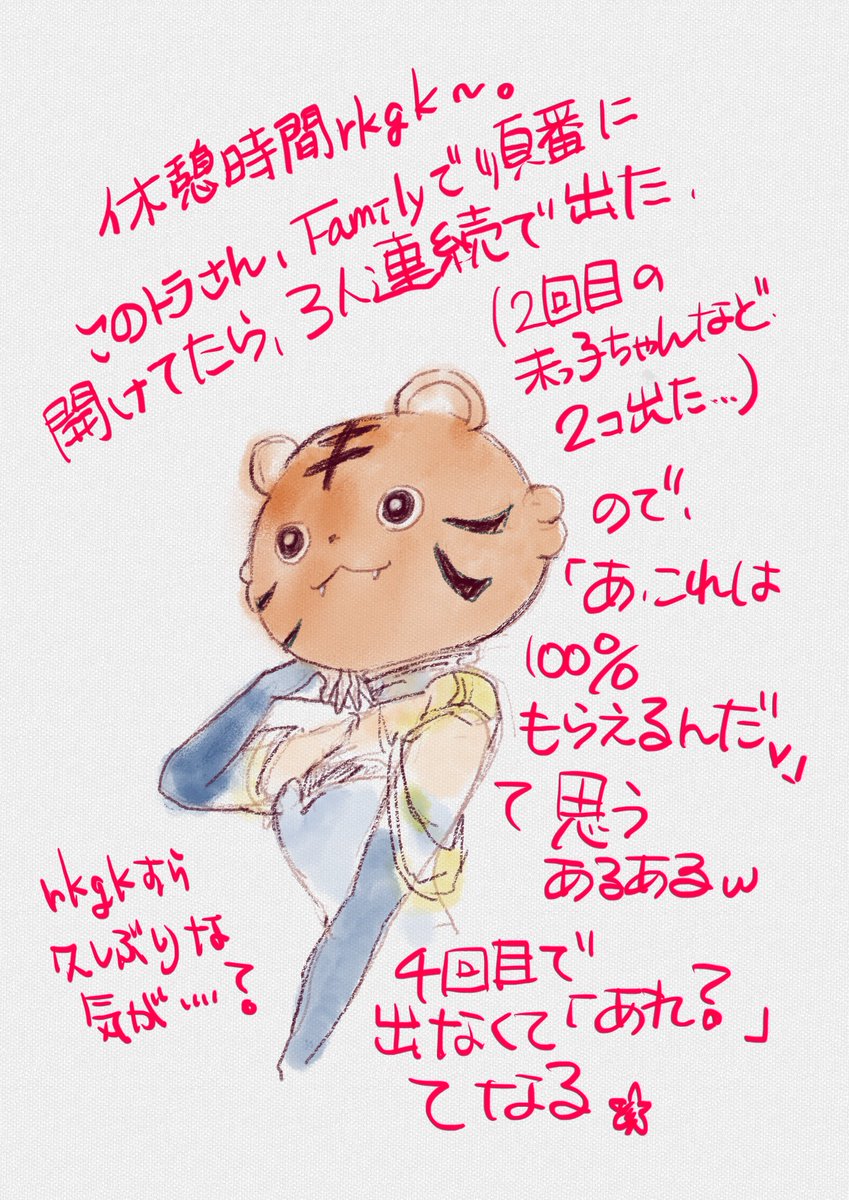 休憩時間rkgk〜。
このトラさん、Familyで順番に
開けてたら、3人連続で出た、
(2回目の
末っ子ちゃんなど
2コ出た…)
ので、
「あ、これは
100%
もらえるんだ」
て思う
あるあるw
4回目で
出なくて「あれ?」
てなる
rkgkすら
久しぶりな
気が....?